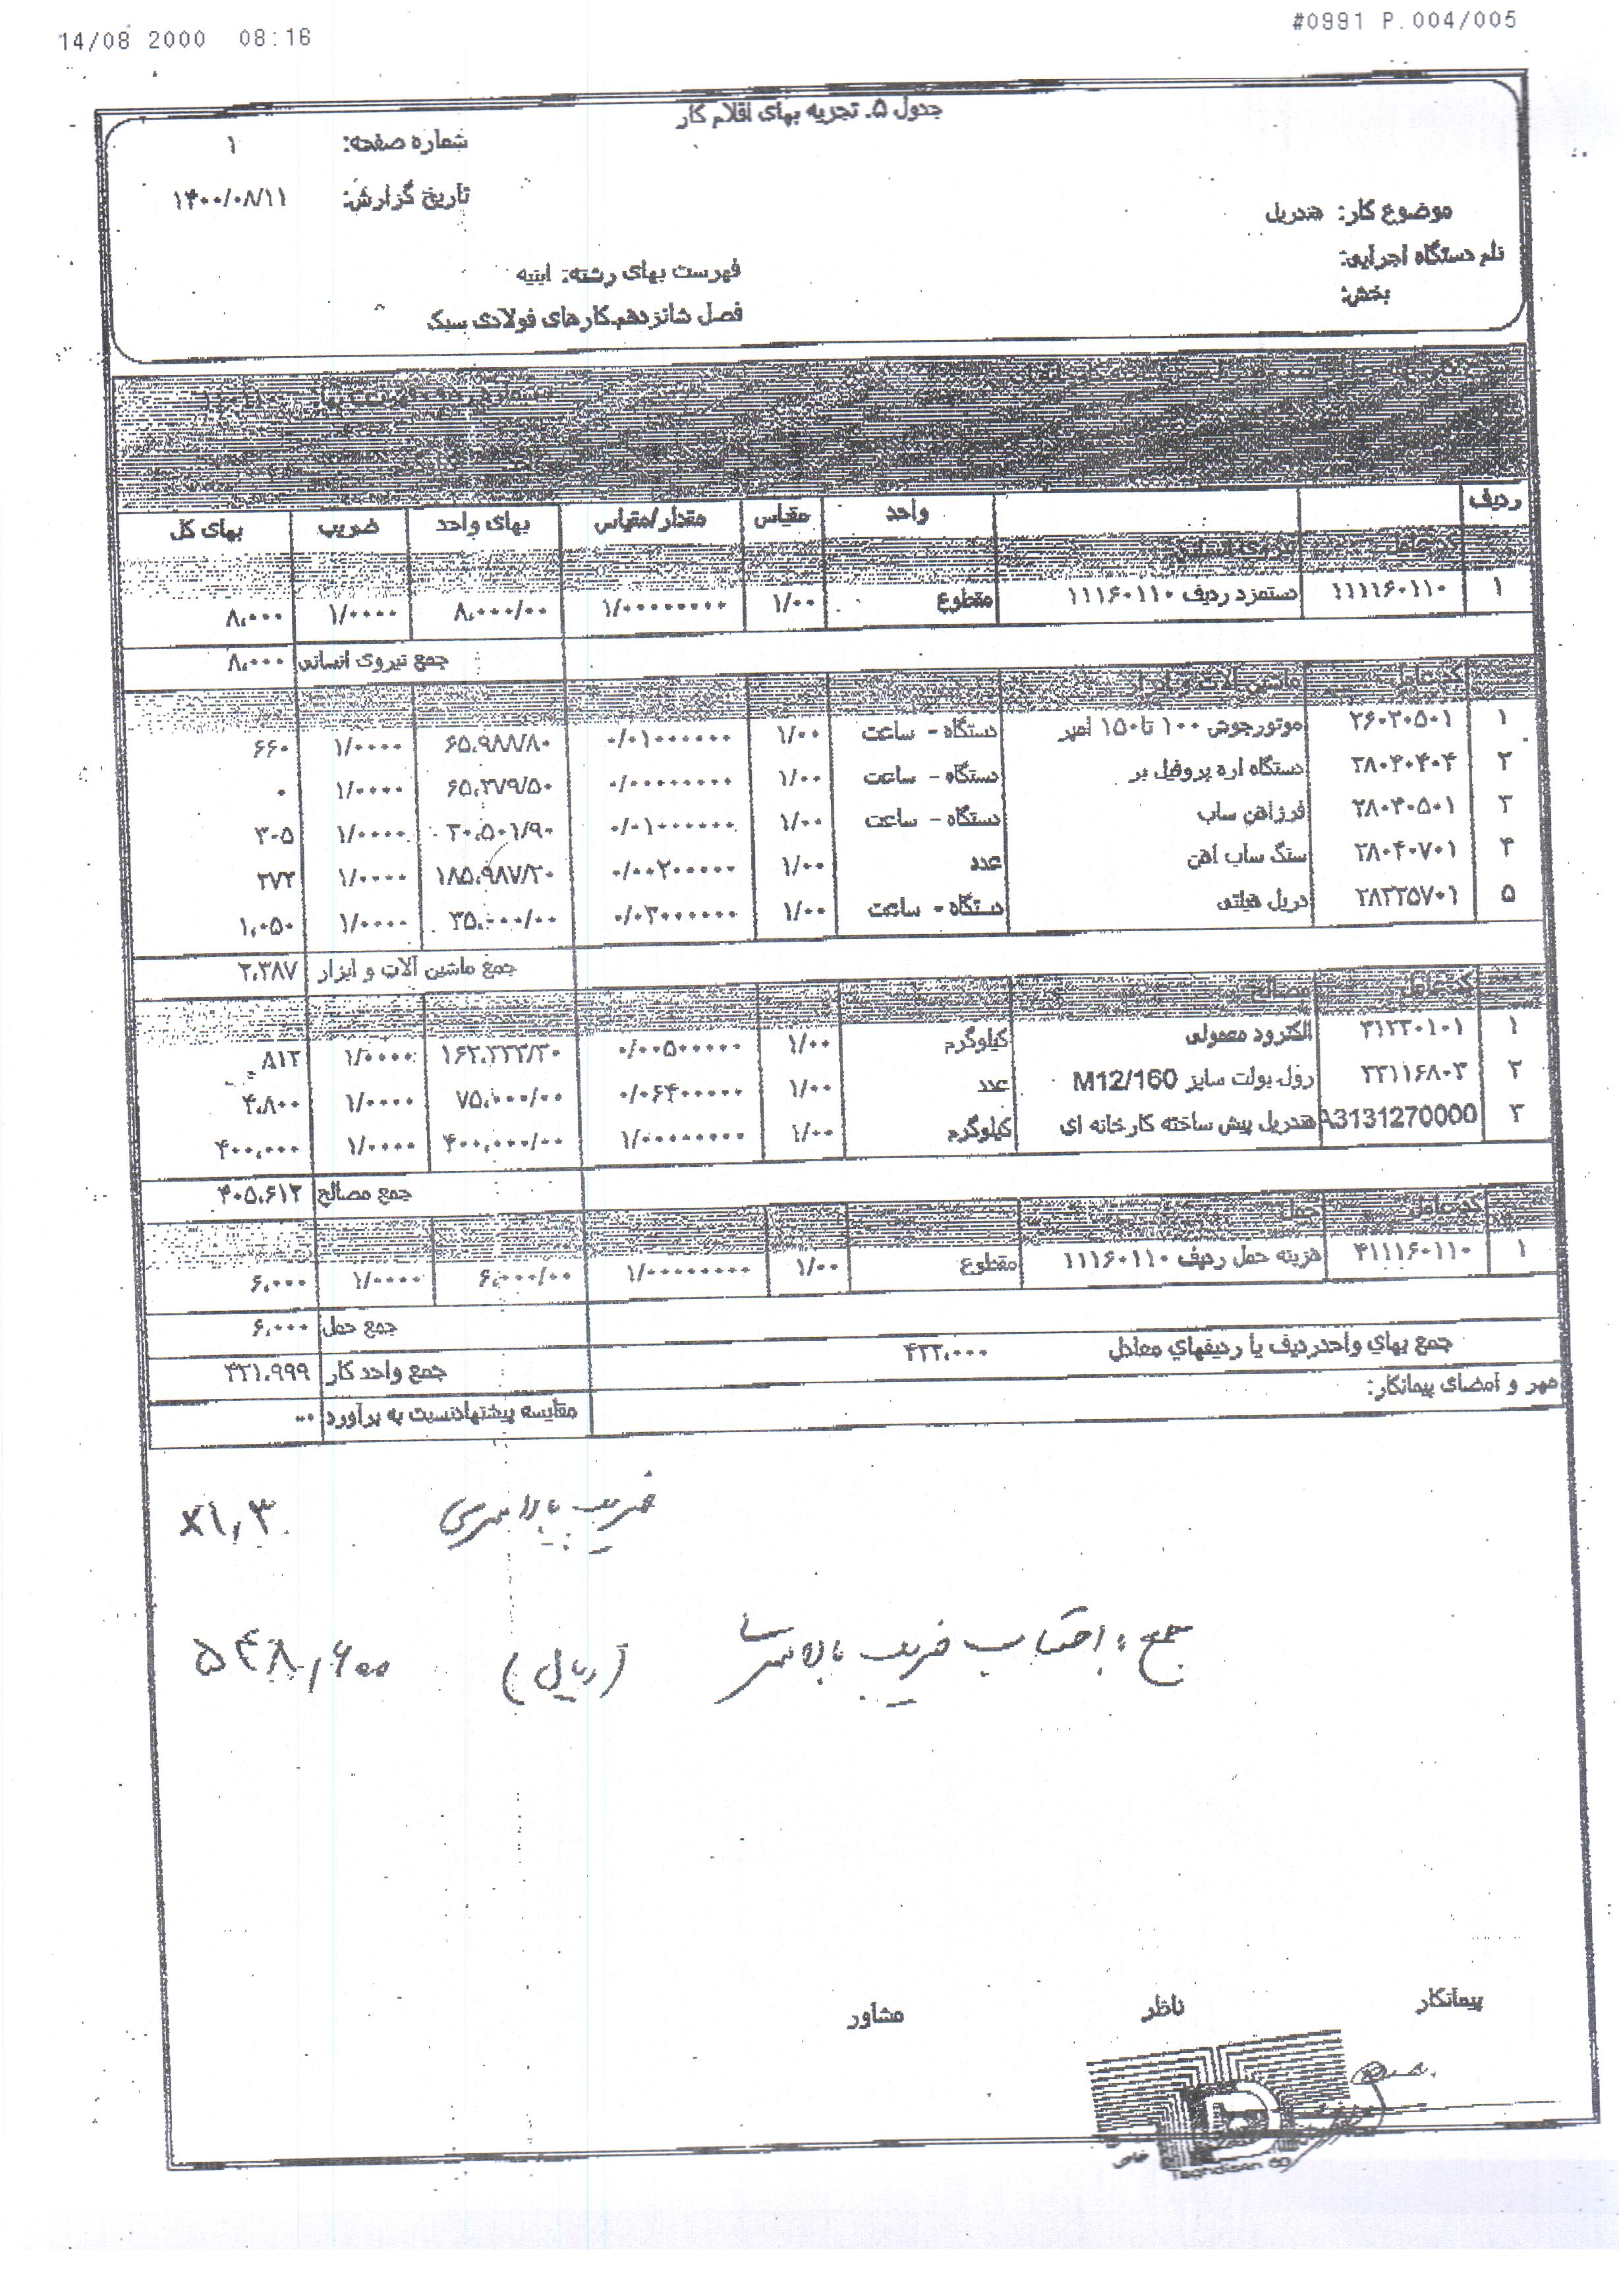 14/08 2000 08:16
#0991 P.004/005
جدول ۵. تجزیه بهای اقلام کار
شماره صفحه: ۱
تاریخ گزارش: ۱۴۰۰/۰۸/۱۱
موضوع کار: هندریل
نام دستگاه اجرایی:
بخش:
فهرست بهای رشته: ابنیه
فصل شانزدهم.کارهای فولادی سبک
ردیف واحد مقیاس مقدار/مقیاس بهای واحد ضریب بهای کل
۱ ۱۱۱۱۶۰۱۱۰ دستمزد ردیف ۱۱۱۶۰۱۱۰ مقطوع ۱/۰۰ ۱/۰۰۰۰۰۰۰۰ ۸،۰۰۰/۰۰ ۱/۰۰۰۰ ۸،۰۰۰
جمع نیروی انسانی ۸،۰۰۰
کد عامل ماشین آلات و ابزار
۱ ۲۶۰۲۰۵۰۱ موتورجوش ۱۰۰ تا ۱۵۰ آمپر دستگاه - ساعت ۱/۰۰ ۰/۰۱۰۰۰۰۰۰ ۶۵،۹۸۸/۸۰ ۱/۰۰۰۰ ۶۶۰
۲ ۲۸۰۴۰۴۰۴ دستگاه اره پروفیل بر دستگاه - ساعت ۱/۰۰ ۰/۰۰۰۰۰۰۰۰ ۶۵،۲۷۹/۵۰ ۱/۰۰۰۰ ۰
۳ ۲۸۰۴۰۵۰۱ فرزآهن ساب دستگاه - ساعت ۱/۰۰ ۰/۰۱۰۰۰۰۰۰ ۳۰،۵۰۶/۹۰ ۱/۰۰۰۰ ۳۰۵
۴ ۲۸۰۴۰۷۰۱ سنگ ساب آهن عدد ۱/۰۰ ۰/۰۰۲۰۰۰۰۰ ۱۸۵،۹۸۷/۳۰ ۱/۰۰۰۰ ۳۷۲
۵ ۲۸۲۲۵۷۰۱ دریل هیلتی دستگاه - ساعت ۱/۰۰ ۰/۰۳۰۰۰۰۰۰ ۳۵،۰۰۰/۰۰ ۱/۰۰۰۰ ۱،۰۵۰
جمع ماشین آلات و ابزار ۲،۳۸۷
کد عامل مصالح
۱ ۳۱۲۳۰۱۰۱ الکترود معمولی کیلوگرم ۱/۰۰ ۰/۰۰۵۰۰۰۰۰ ۱۶۲،۳۳۳/۳۰ ۱/۰۰۰۰ ۸۱۲
۲ ۳۳۱۱۶۸۰۳ رول بولت سایز M12/160 عدد ۱/۰۰ ۰/۰۶۴۰۰۰۰۰ ۷۵،۰۰۰/۰۰ ۱/۰۰۰۰ ۴،۸۰۰
۳ A3131270000 هندریل پیش ساخته کارخانه ای کیلوگرم ۱/۰۰ ۱/۰۰۰۰۰۰۰۰ ۴۰۰،۰۰۰/۰۰ ۱/۰۰۰۰ ۴۰۰،۰۰۰
جمع مصالح ۴۰۵،۶۱۲
کد عامل حمل
۱ ۴۱۱۱۶۰۱۱۰ هزینه حمل ردیف ۱۱۱۶۰۱۱۰ مقطوع ۱/۰۰ ۱/۰۰۰۰۰۰۰۰ ۶،۰۰۰/۰۰ ۱/۰۰۰۰ ۶،۰۰۰
جمع حمل ۶،۰۰۰
جمع بهای واحدردیف یا ردیفهای معادل ۴۲۲،۰۰۰
جمع واحد کار ۴۲۱،۹۹۹
مهر و امضای پیمانکار:
مقایسه پیشنهادنسبت به برآورد ۰۰
ضریب بالاسری ×۱,۳
جمع با احتساب ضریب بالاسری (ریال) ۵۴۸,۶۰۰
پیمانکار
ناظر
مشاور
خاص
Taghdisan